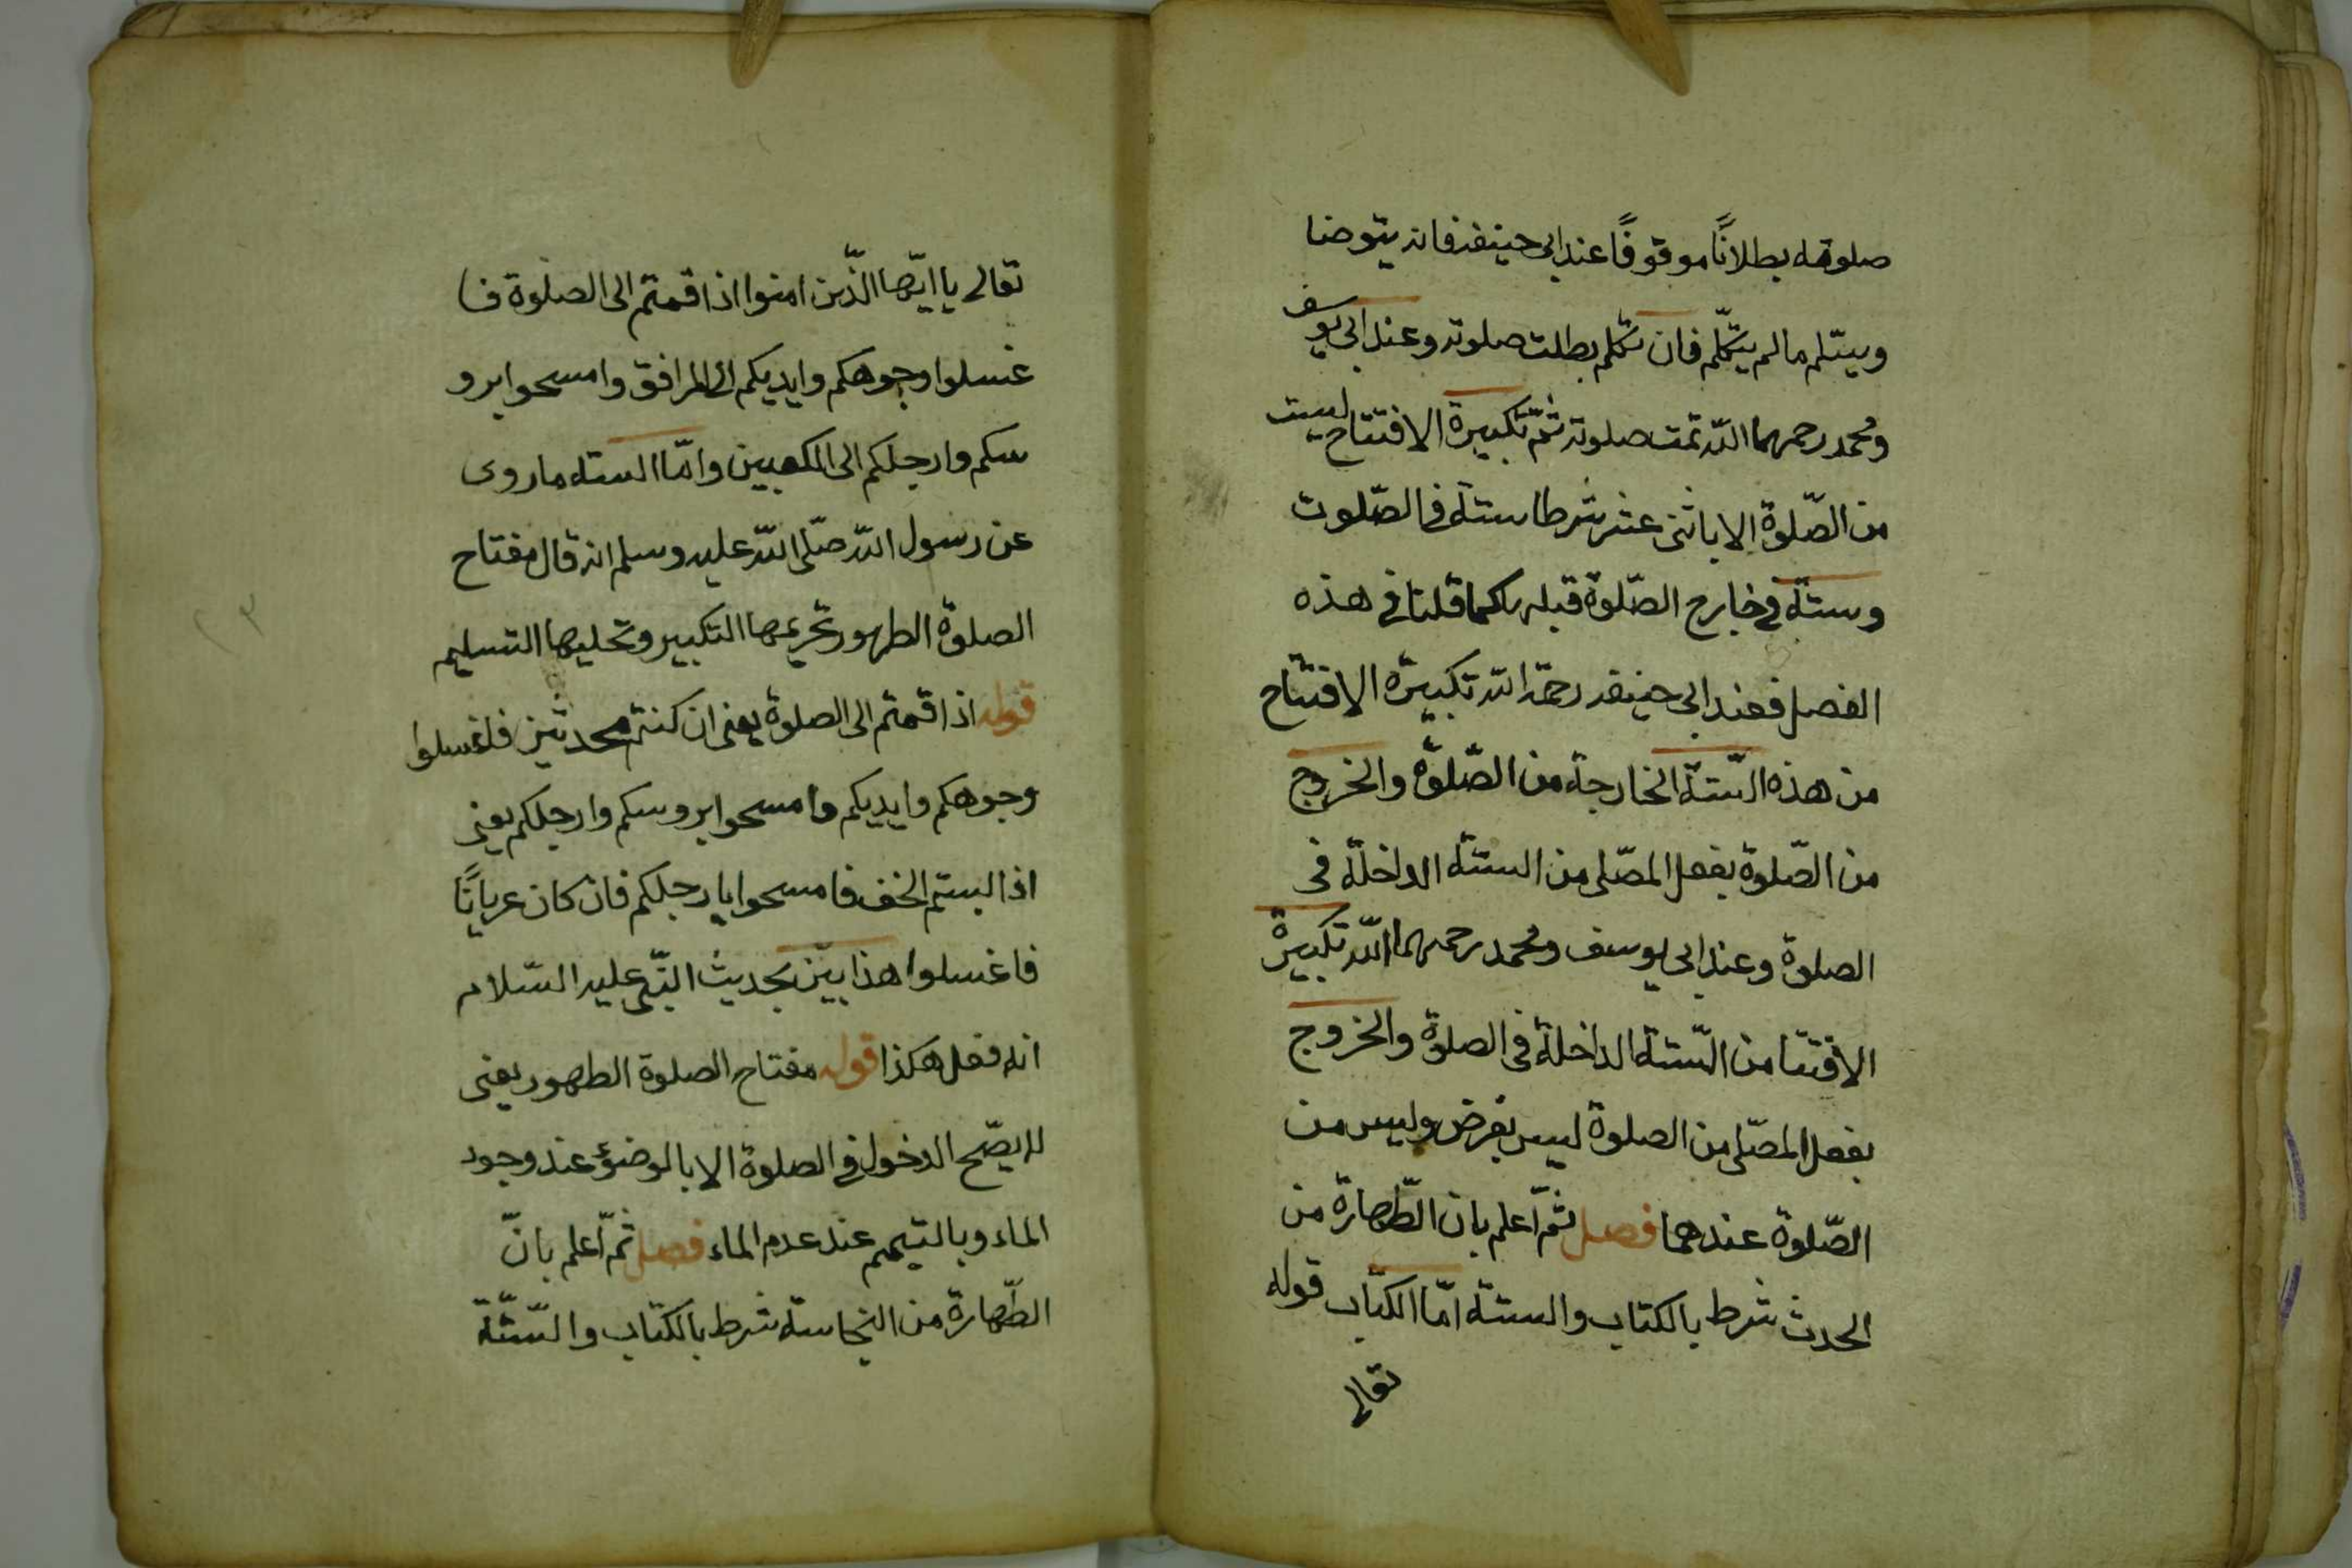 صلوته بطلانًا موقوفًا عند ابى حنيفه فانه يتوضا
ويسّلم مالم يتكلّم فان تكلم بطلت صلوته وعند ابى يوسف
ومحمد رحمهما اللّه تمت صلوته ثمّ تكبيرة الافتتاح ليست
من الصّلوة الا باثنى عشر شرطا ستة فى الصّلوت
وستة فى خارج الصّلوة قبله كما قلنا فى هذه
الفصل فعند ابى حنيفه رحمة اللّه تكبيرة الافتتاح
من هذه السّتة الخارجة من الصّلوة والخروج
من الصّلوة بفعل المصّلى من الستة الداخلة فى
الصلوة وعند ابى يوسف ومحمد رحمهما اللّه تكبيرة
الافتتا من السّتة الداخلة فى الصلوة والخروج
بفعل المصّلى من الصلوة ليس بفرض وليس من
الصّلوة عندهما فصل ثمّ اعلم بان الطّهارة من
الحدث شرط بالكتاب والسنة امّا الكتاب قوله
تعالى
تعالى يا ايّها الذّين امنوا اذا قمتم الى الصلوة فا
غسلوا وجوهكم وايديكم الى المرافق وامسحوا برو
سكم وارجلكم الى الكعبين وامّا السنه ماروى
عن رسول اللّه صلّى اللّه عليه وسلم انه قال مفتاح
الصلوة الطهور تحريمها التكبير وتحليها التسليم
قوله اذا قمتم الى الصلوة يعنى ان كنتم محدثين فاغسلوا
وجوهكم وايديكم وامسحوا بروسكم وارجلكم يعنى
اذا لبستم الخف فامسحوا بارجلكم فان كان عريانًا
فاغسلوا هذا بيّن بحديث النبّى عليه السّلام
انه فعل هكذا قوله مفتاح الصلوة الطهور يعنى
لا يصّح الدخول فى الصلوة الا بالوضؤ عند وجود
الماء وبالتيمم عند عدم الماء فصل ثمّ اعلم بانّ
الطّهارة من النجاسة شرط بالكتاب والسّنّة